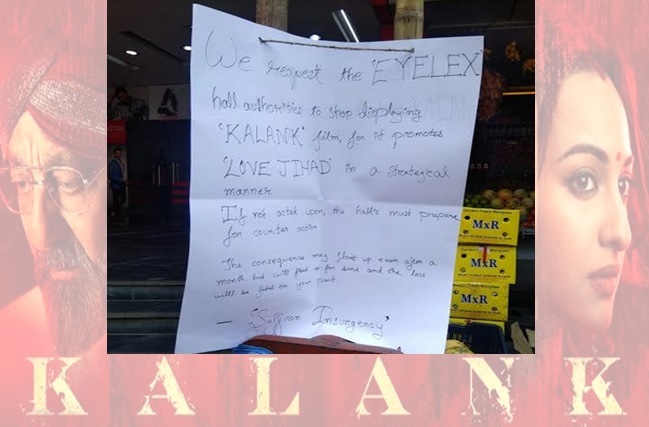 We request the 'EYELEX'
hall authorities to stop displaying
'KALANK' film, for it promotes
'LOVE JIHAD' in a strategical
manner
If not acted upon, the halls must prepare
for counter action
The consequence may start up even after a
month but will for sure and the loss
will be fatal on your part.
— 'Saffron Insurgency'
MxR
MxR
MxR
KALANK